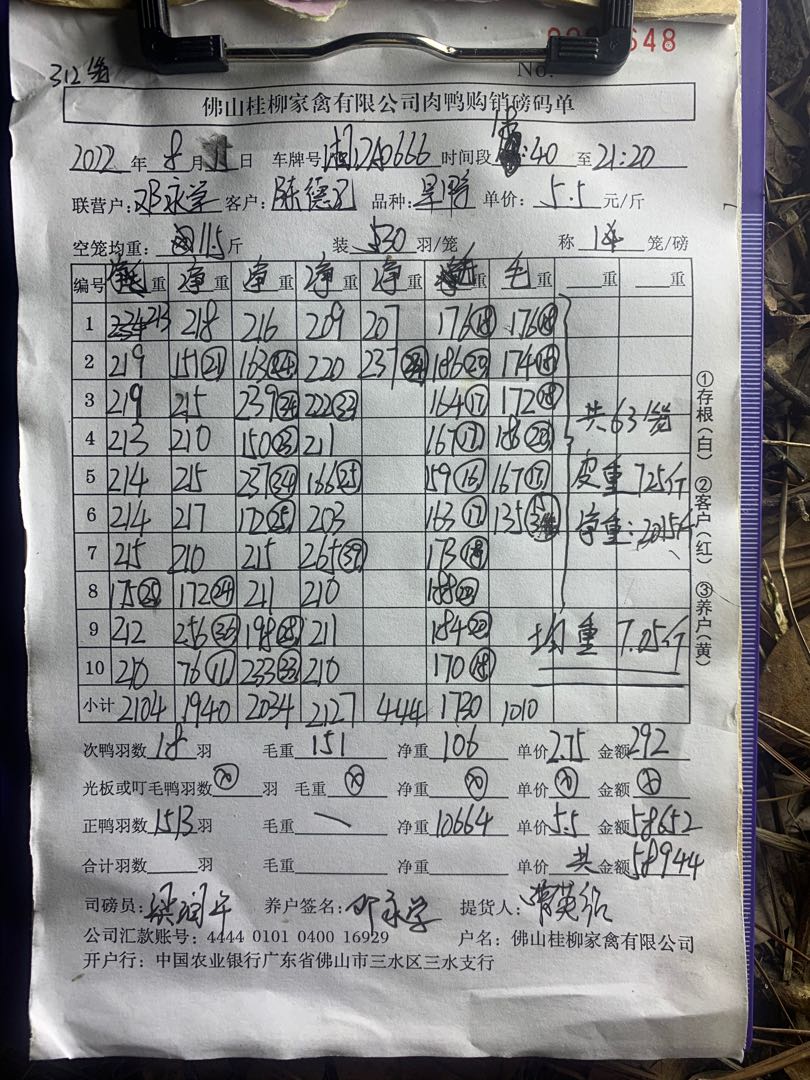 312笼
No. 648
佛山桂柳家禽有限公司肉鸭购销磅码单
2022 年 8 月 日 车牌号 湘 0666 时间段 18:40 至 21:20
联营户: 邓永学 客户: 陈德 品种: 旱鸭 单价: 5.5 元/斤
空笼均重: 11.5 斤 装 30 羽/笼 称 笼/磅
编号 重 净重 净重 净重 净重 重 毛重 重 重
1 213 218 216 209 207 176⑱ 176⑱
2 219 151㉑ 163㉔ 220 237㉞ 186⑳ 174⑱
3 219 215 239㉞ 222㉝ 164⑰ 172⑱
4 213 210 150㉓ 211 167⑰ 186⑳ 共63笼
5 214 215 237㉞ 166㉕ 159⑯ 167⑰ 皮重 725斤
6 214 217 172㉕ 203 163⑰ 135 净重: 2015斤
7 215 210 215 265㊴ 173⑱
8 175㉕ 172㉔ 211 210 188⑳
9 212 256㊱ 198㉘ 211 184⑳ 均重 7.05斤
10 210 76⑪ 233㉝ 210 170⑱
小计 2104 1940 2034 2127 444 1730 1010
次鸭羽数 18 羽 毛重 151 净重 106 单价 2.75 金额 292
光板或叮毛鸭羽数 ⊗ 羽 毛重 ⊗ 净重 ⊗ 单价 ⊗ 金额 ⊗
正鸭羽数 1513 羽 毛重 \ 净重 10664 单价 5.5 金额 58652
合计羽数 羽 毛重 净重 单价 共 金额 58944
司磅员: 梁润年 养户签名: 邓永学 提货人: 曾英
公司汇款账号: 4444 0101 0400 16929 户名: 佛山桂柳家禽有限公司
开户行: 中国农业银行广东省佛山市三水区三水支行
①存根(白) ②客户(红) ③养户(黄)